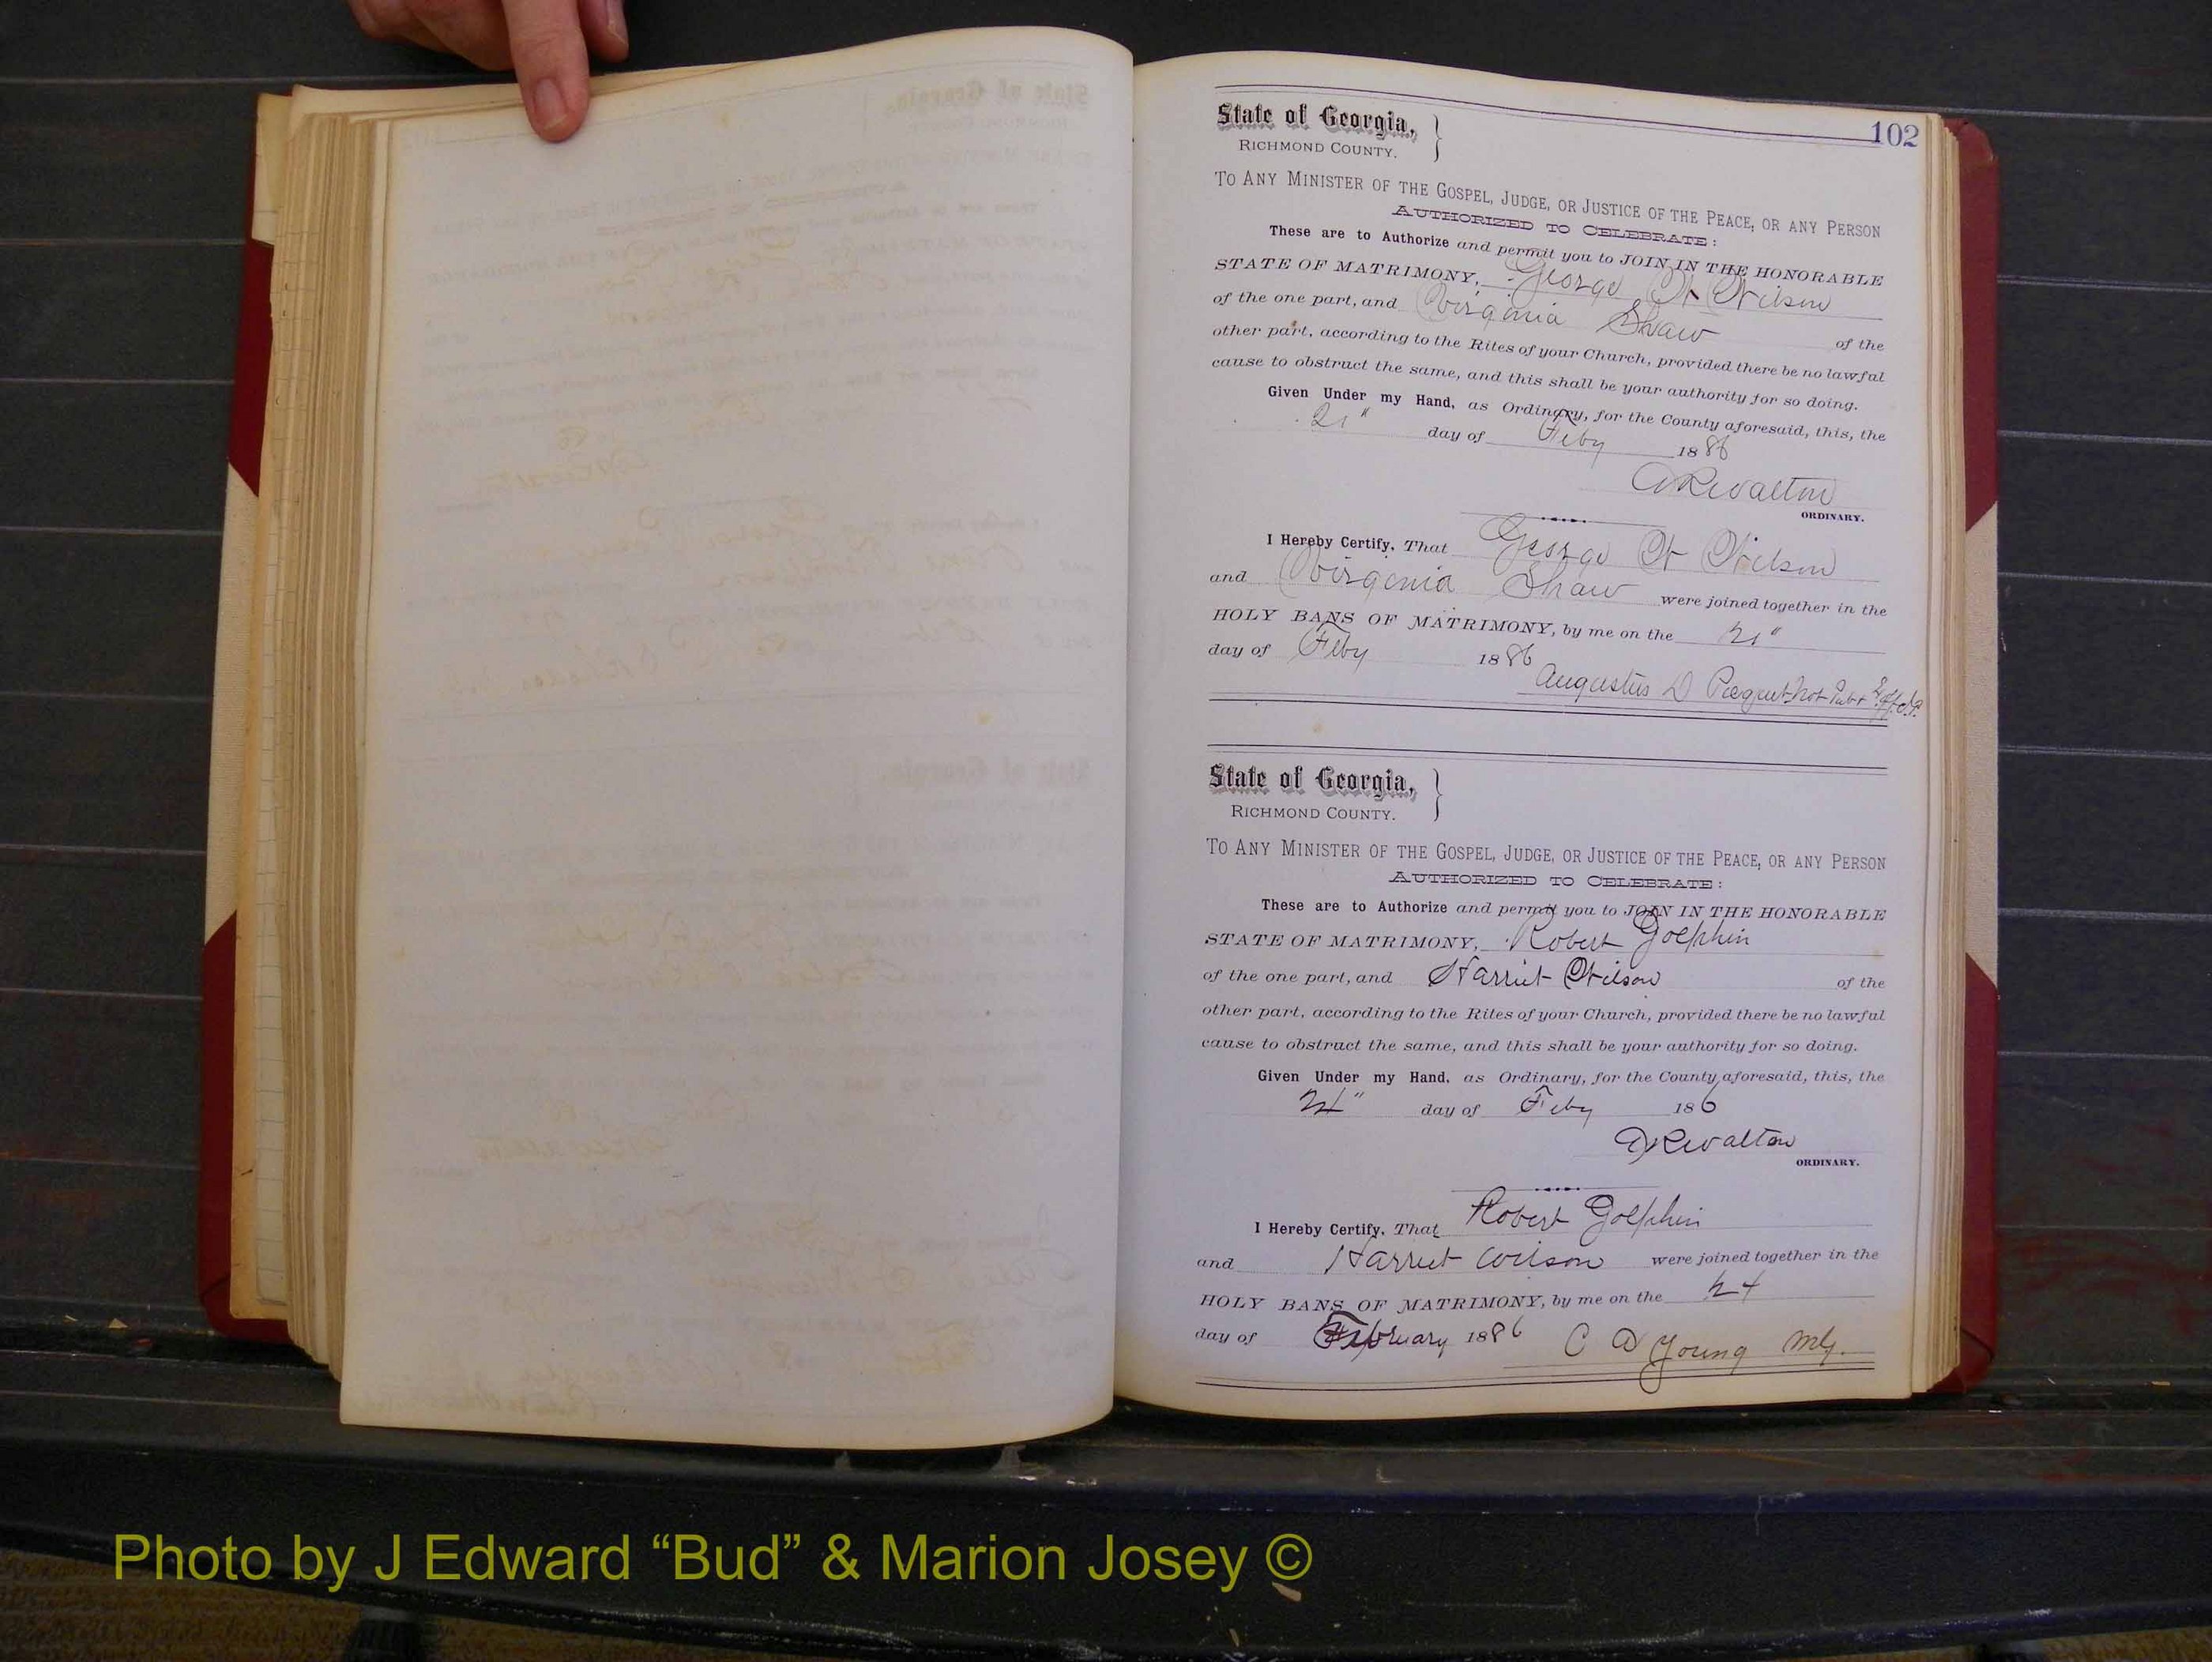 102
State of Georgia, }
RICHMOND COUNTY.
TO ANY MINISTER OF THE GOSPEL, JUDGE, OR JUSTICE OF THE PEACE, OR ANY PERSON
AUTHORIZED TO CELEBRATE:
These are to Authorize and permit you to JOIN IN THE HONORABLE
STATE OF MATRIMONY, George W Wilson
of the one part, and Virginia Shaw of the
other part, according to the Rites of your Church, provided there be no lawful
cause to obstruct the same, and this shall be your authority for so doing.
Given Under my Hand, as Ordinary, for the County aforesaid, this, the
21" day of Feby 1886
DR Walton
ORDINARY.
I Hereby Certify, That George W Wilson
and Virginia Shaw were joined together in the
HOLY BANS OF MATRIMONY, by me on the 21"
day of Feby 1886
Augustus D Not Pub
State of Georgia, }
RICHMOND COUNTY.
TO ANY MINISTER OF THE GOSPEL, JUDGE, OR JUSTICE OF THE PEACE, OR ANY PERSON
AUTHORIZED TO CELEBRATE:
These are to Authorize and permit you to JOIN IN THE HONORABLE
STATE OF MATRIMONY, Robert Golphin
of the one part, and Harriet Wilson of the
other part, according to the Rites of your Church, provided there be no lawful
cause to obstruct the same, and this shall be your authority for so doing.
Given Under my Hand, as Ordinary, for the County aforesaid, this, the
24" day of Feby 186
DR Walton
ORDINARY.
I Hereby Certify, That Robert Golphin
and Harriet Wilson were joined together in the
HOLY BANS OF MATRIMONY, by me on the 24
day of February 1886
C D Young Mg.
Photo by J Edward “Bud” & Marion Josey ©